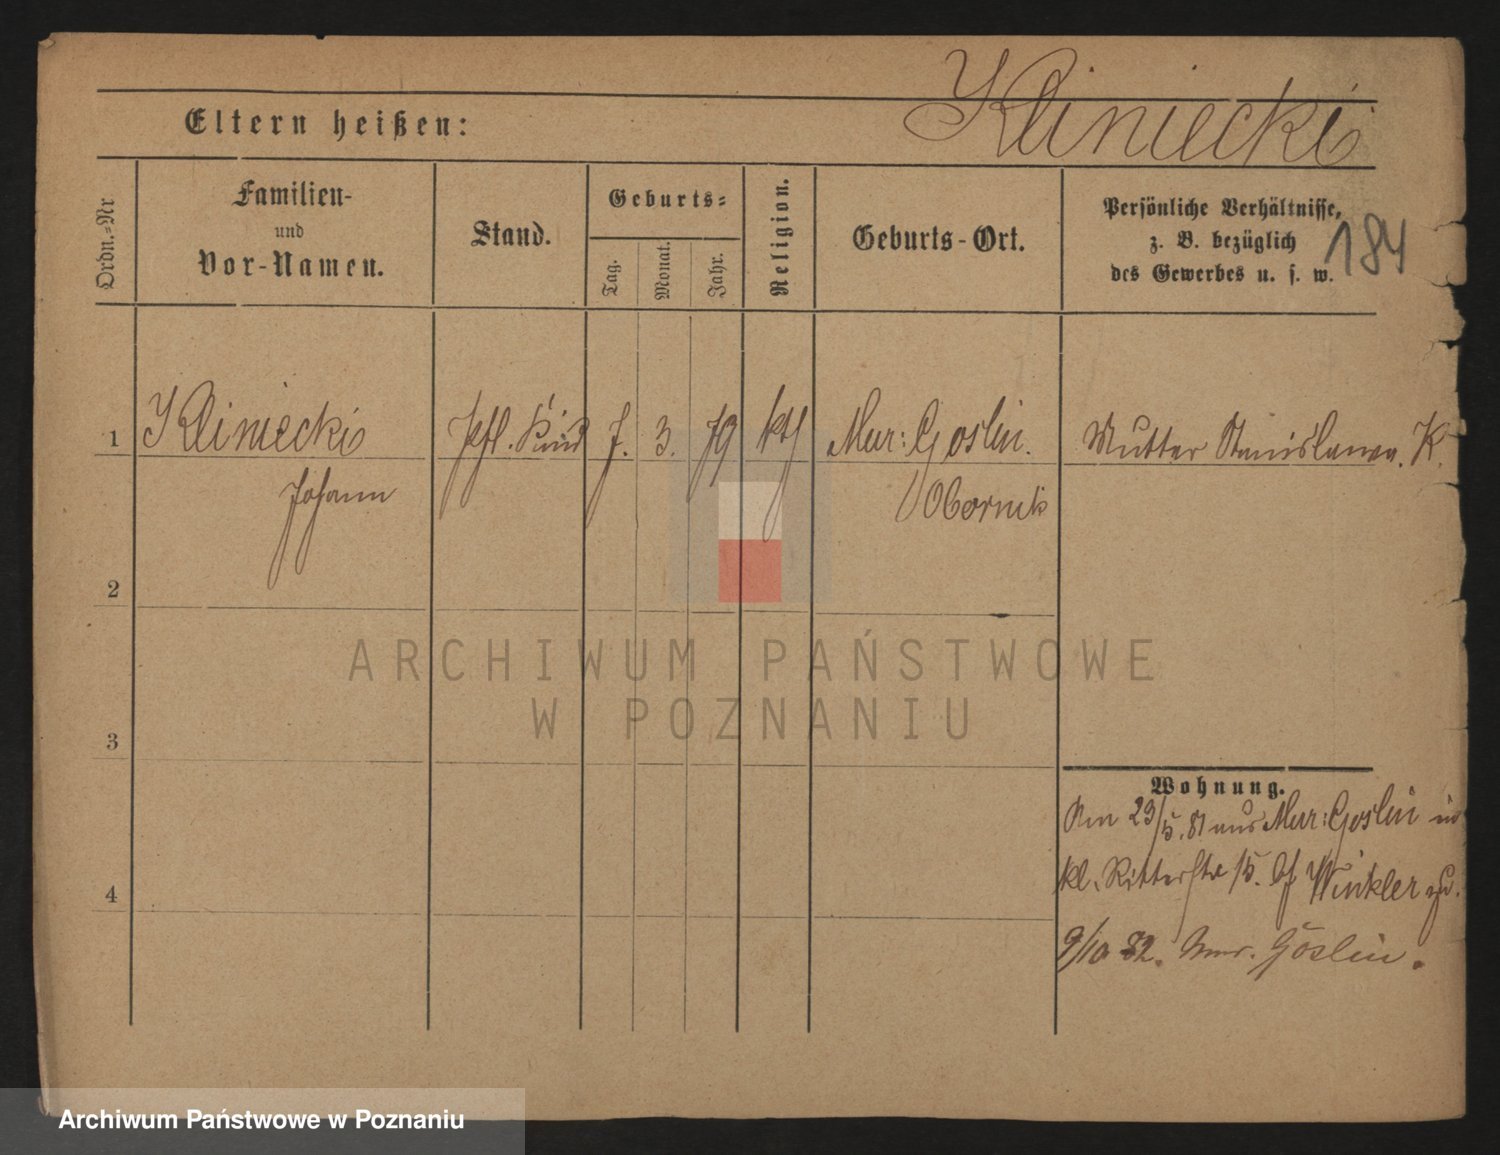 Kliniecki
Eltern heißen:
184
Ordn.=Nr
Familien-
und
Vor-Namen.
Stand.
Geburts=
Tag.
Monat.
Jahr.
Religion.
Geburts-Ort.
Persönliche Verhältnisse,
z. B. bezüglich
des Gewerbes u. s. w.
1 Kliniecki Pfl. Kind 7. 3. 79 kth Mur: Goslin. Mutter Stanislawa. K.
Johann Obornik
2
3
4
Wohnung.
Am 23/5. 81 aus Mur: Goslin in
kl. Ritterstr 15. bf Winkler
9/10 82. Mur. Goslin.
ARCHIWUM PAŃSTWOWE
W POZNANIU
Archiwum Państwowe w Poznaniu